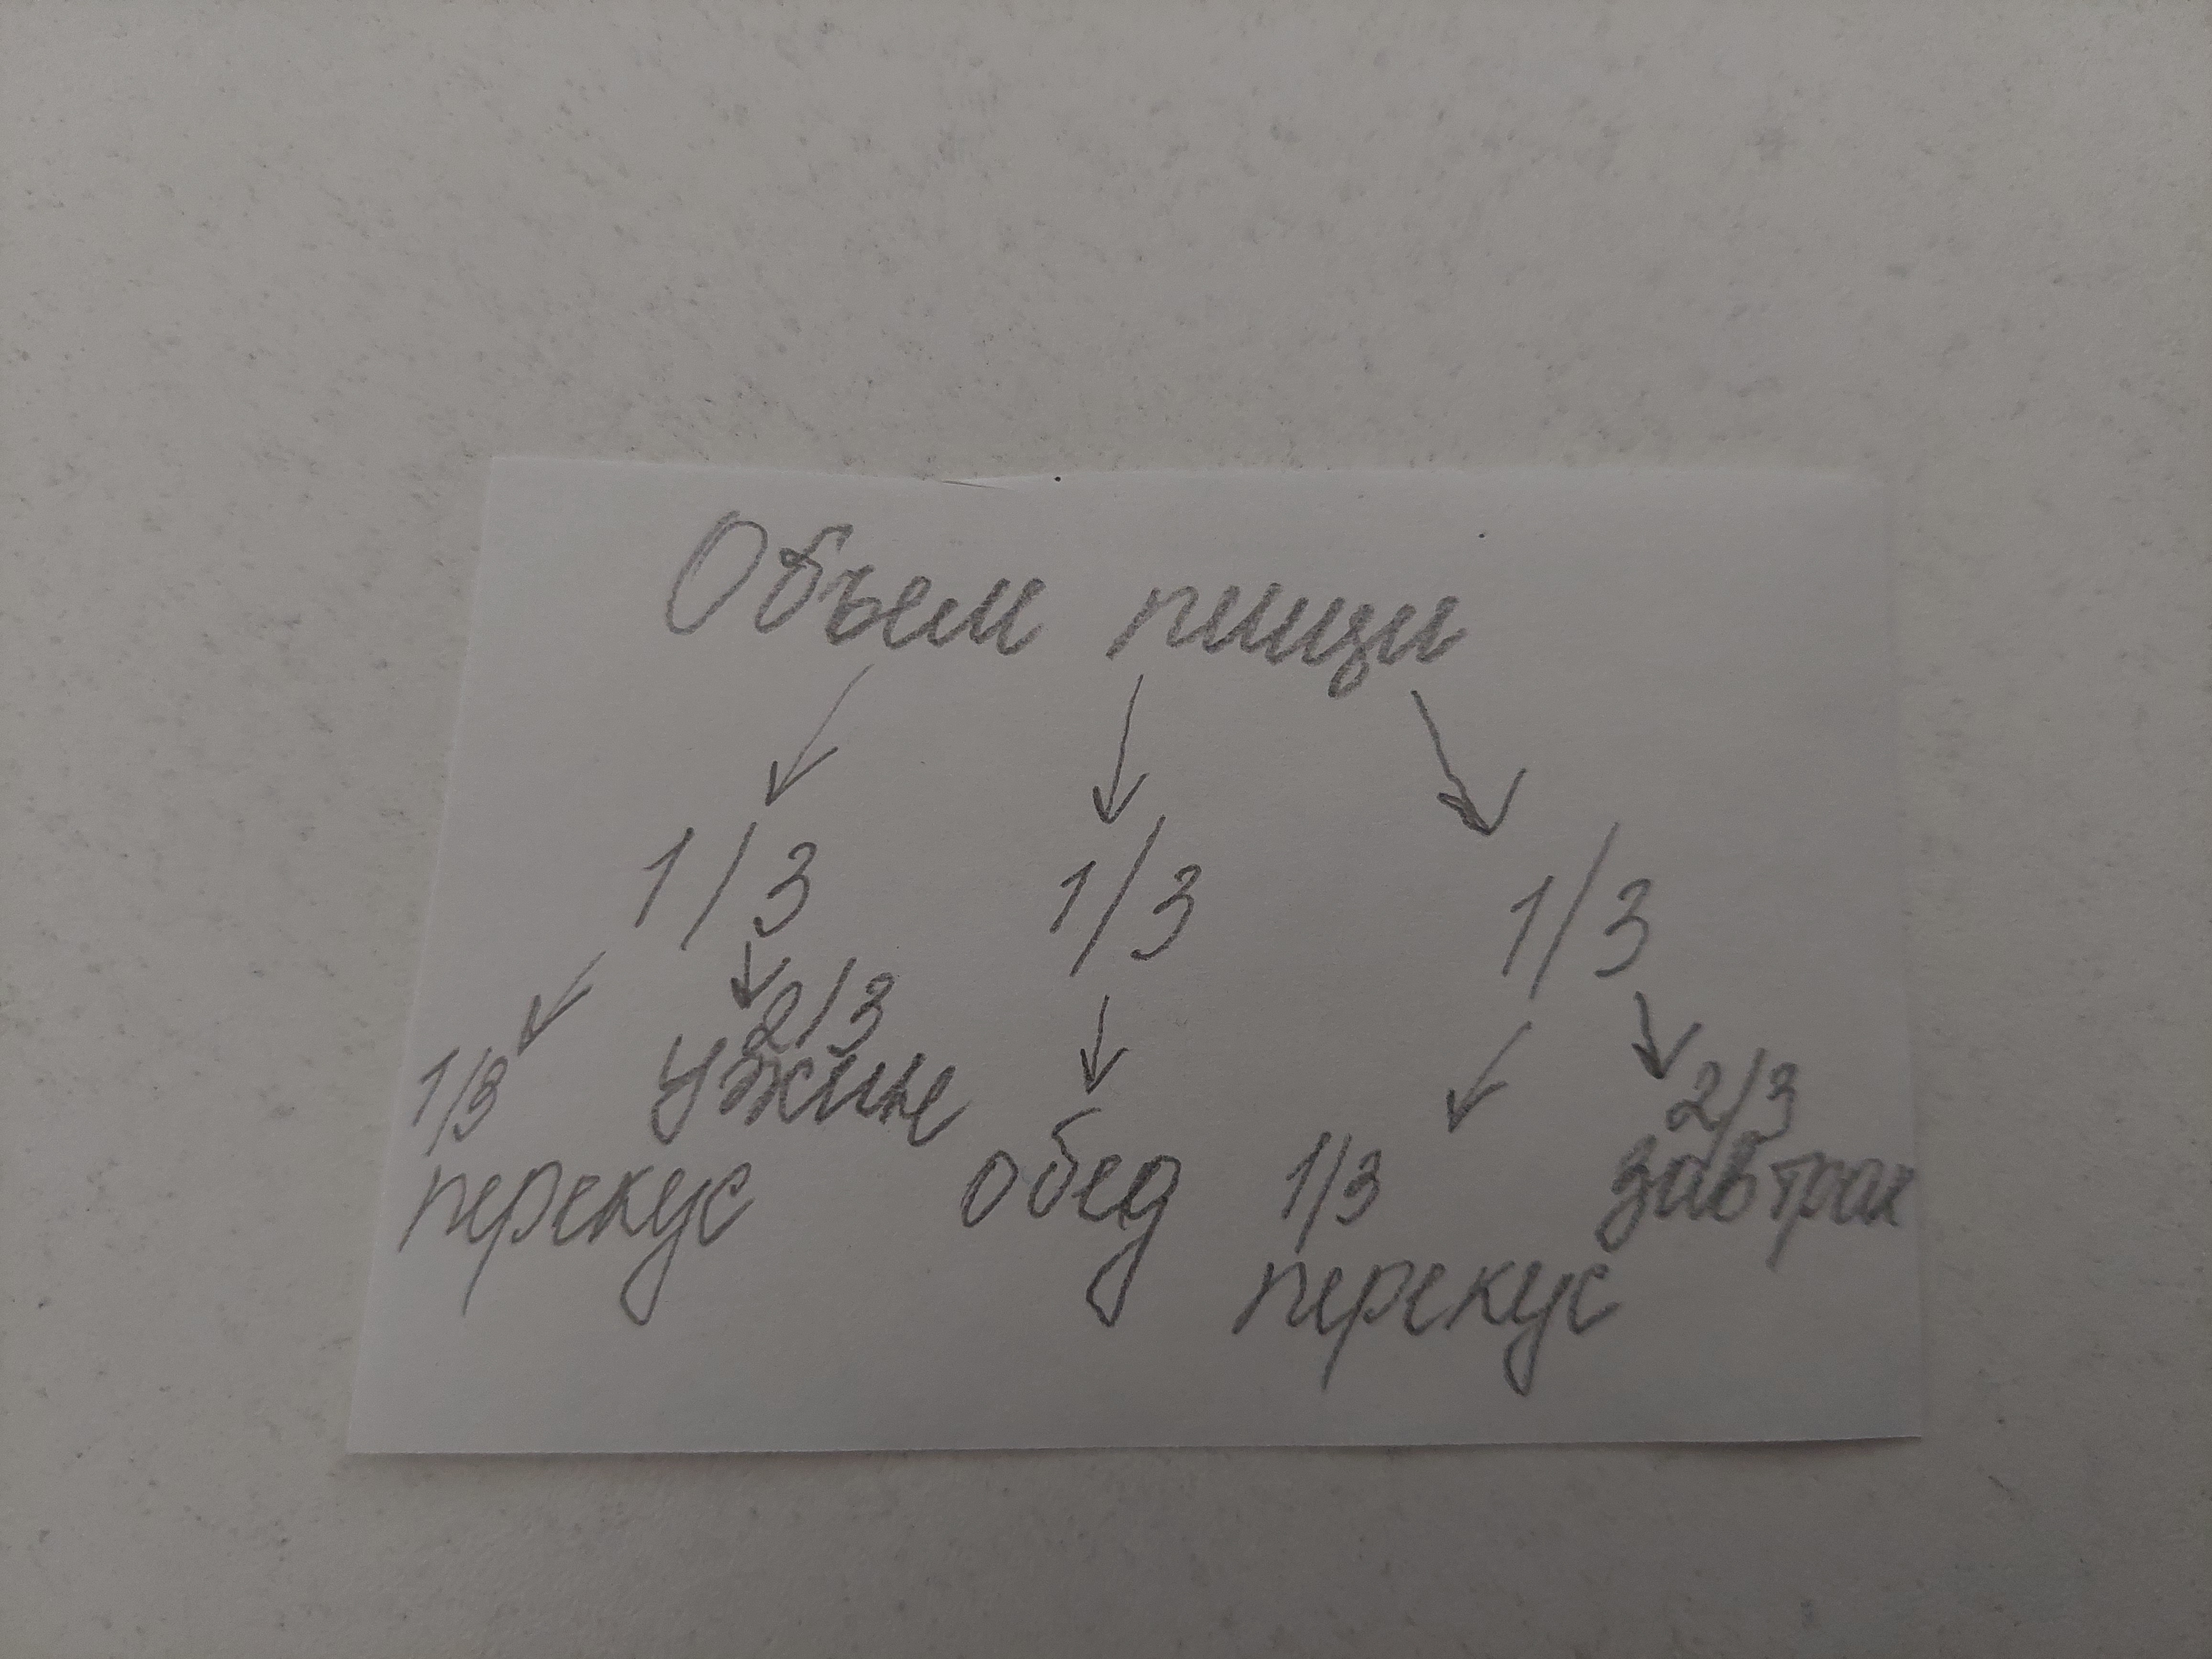 Объем пищи
1/3 1/3 1/3
1/3 2/3 2/3
ужин завтрак
перекус обед 1/3
перекус